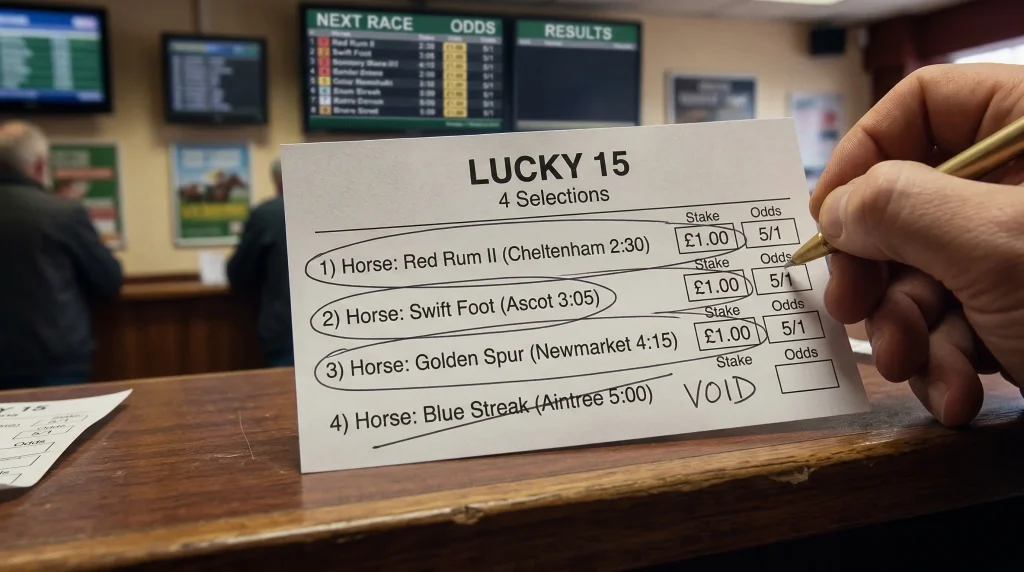 NEXT RACE ODDS
RESULTS
Red Rum II
Swift Foot
LUCKY 15
4 Selections
Stake Odds
1) Horse: Red Rum II (Cheltenham 2:30) £1.00 5/1
Stake Odds
2) Horse: Swift Foot (Ascot 3:05) £1.00 5/1
Stake Odds
3) Horse: Golden Spur (Newmarket 4:15) £1.00 5/1
Stake Odds
4) Horse: Blue Streak (Aintree 5:00) VOID
Y 15
Odds